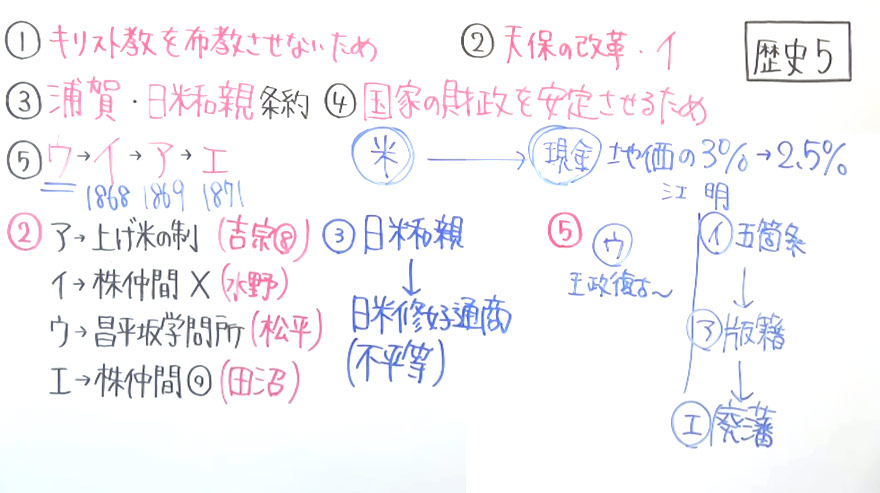 ① キリスト教を布教させないため
② 天保の改革・イ
歴史5
③ 浦賀・日米和親条約
④ 国家の財政を安定させるため
⑤ ウ→イ→ア→エ
1868 1869 1871
米 → 現金 地価の3%→2.5%
② ア→上げ米の制 (吉宗⑧)
イ→株仲間 X (水野)
ウ→昌平坂学問所 (松平)
エ→株仲間 (田沼)
③ 日米和親
↓
日米修好通商
(不平等)
⑤ 江 明
ウ
王政復古〜
イ 五箇条
↓
ア 版籍
↓
エ 廃藩